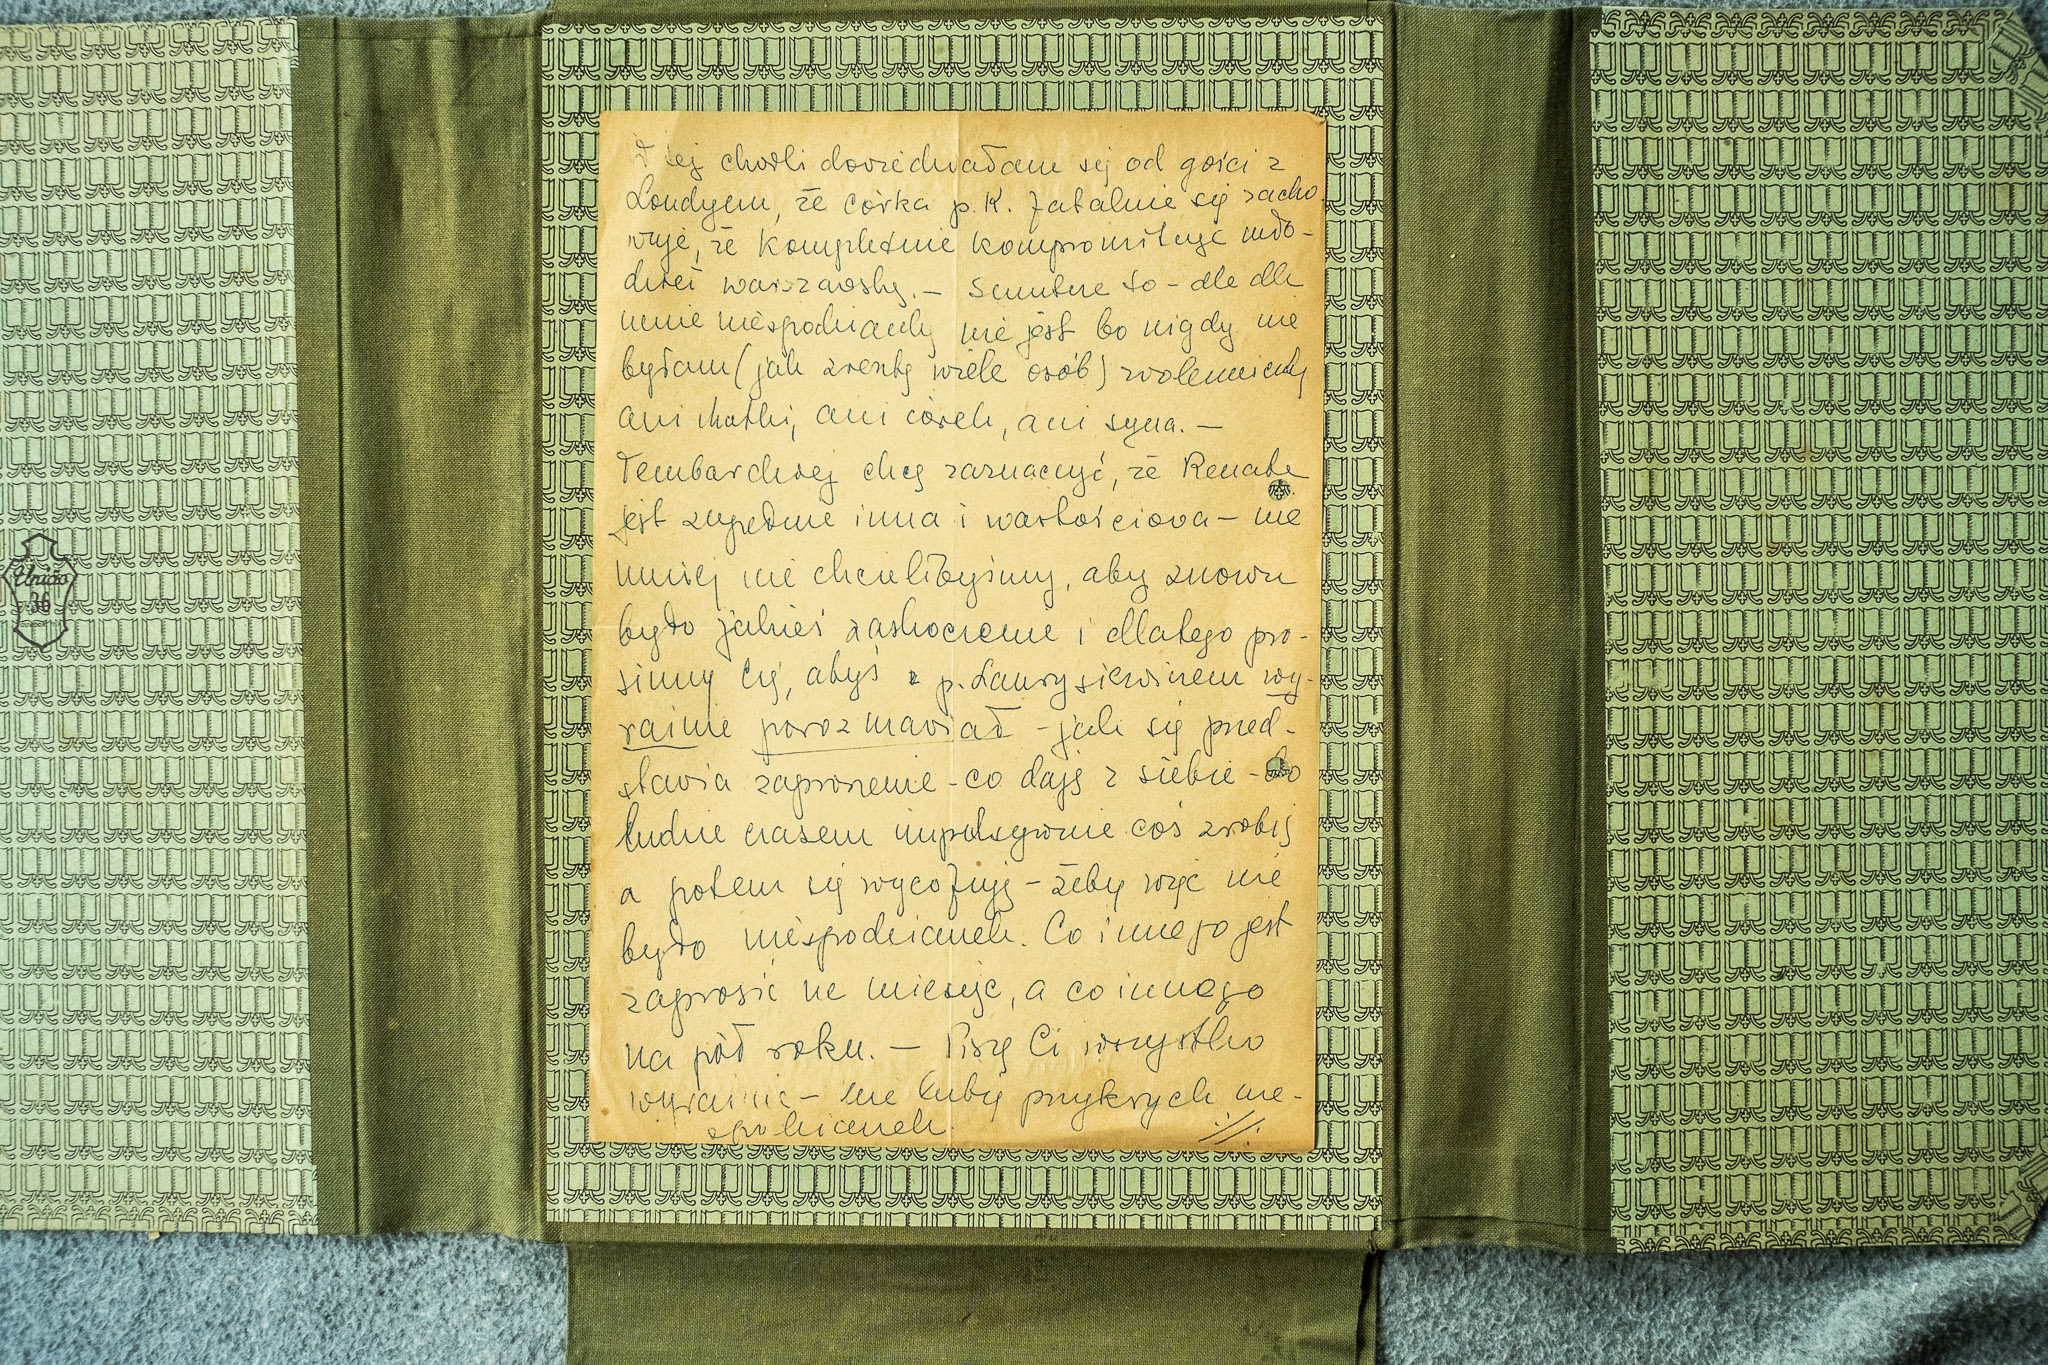 W tej chwili dowiedziałam się od gości z
Londynu, że córka p. K. fatalnie się zacho-
wuje, że kompletnie kompromituje mło-
dzież warszawską. – Smutne to – ale dla
mnie niespodzianką nie jest bo nigdy nie
byłam (jak zresztą wiele osób) zwolenniczką
ani matki, ani córek, ani syna. –
Tembardziej chcę zaznaczyć, że Renata
jest zupełnie inna i wartościowa – nie
mniej nie chcielibyśmy, aby znowu
było jakieś zaskoczenie i dlatego pro-
simy Cię, abyś z p. wy-
raźnie porozmawiał – jak się przed-
stawia zaproszenie – co dają z siebie – bo
ludzie czasem impulsywnie coś zrobią
a potem się wycofują – żeby więc nie
było niespodzianek. Co innego jest
zaprosić na miesiąc, a co innego
na pół roku. – Piszę Ci wszystko
wyraźnie – nie lubię przykrych nie-
spodzianek.
Unicia
36